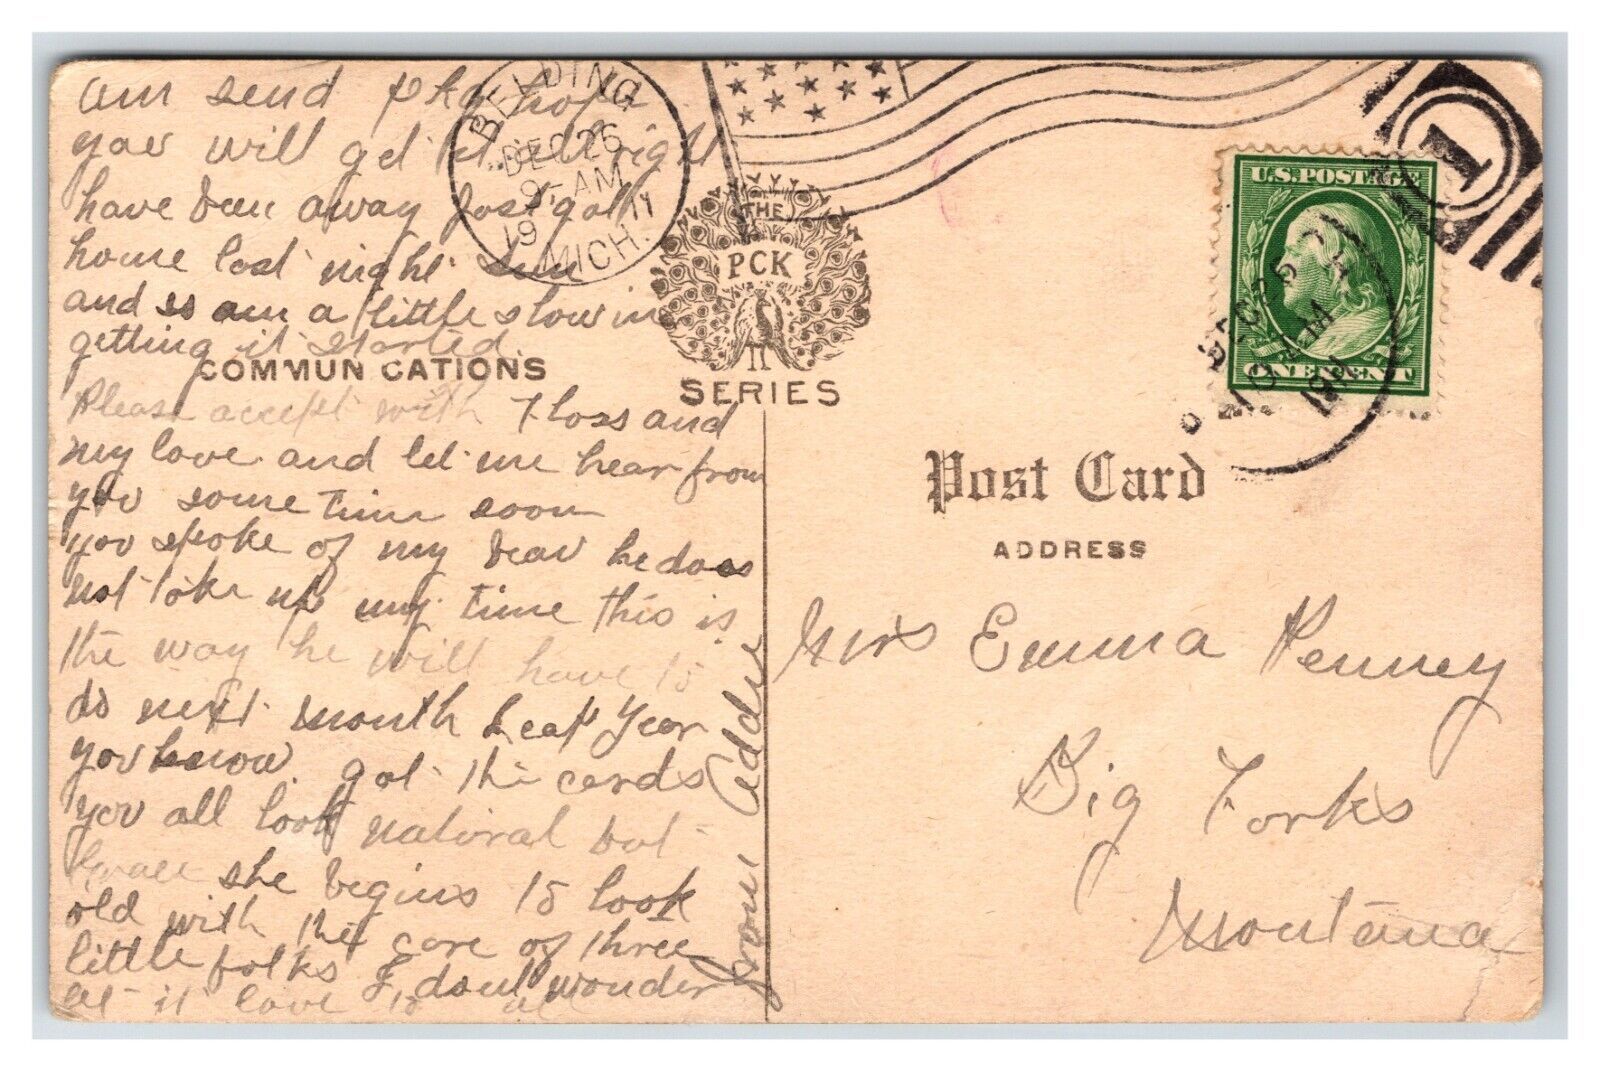 am send pkg hope
you will get it all right
have been away just got
home last night
and so am a little slow in
getting it started.
COMMUNICATIONS
Please accept with Floss and
my love and let me hear from
you some time soon
you spoke of my beau he does
not take up my time this is
the way he will have to
do next month Leap Year
you know. got the cards
you all look natural but
she begins to look
old with the care of three
little folks I dont wonder
let it love to all
from Addie
BELDING
DEC 26
9-AM
1911
MICH.
THE
PCK
SERIES
U.S. POSTAGE
ONE CENT
1
1911
Post Card
ADDRESS
Mrs Emma Penney
Big Forks
Montana